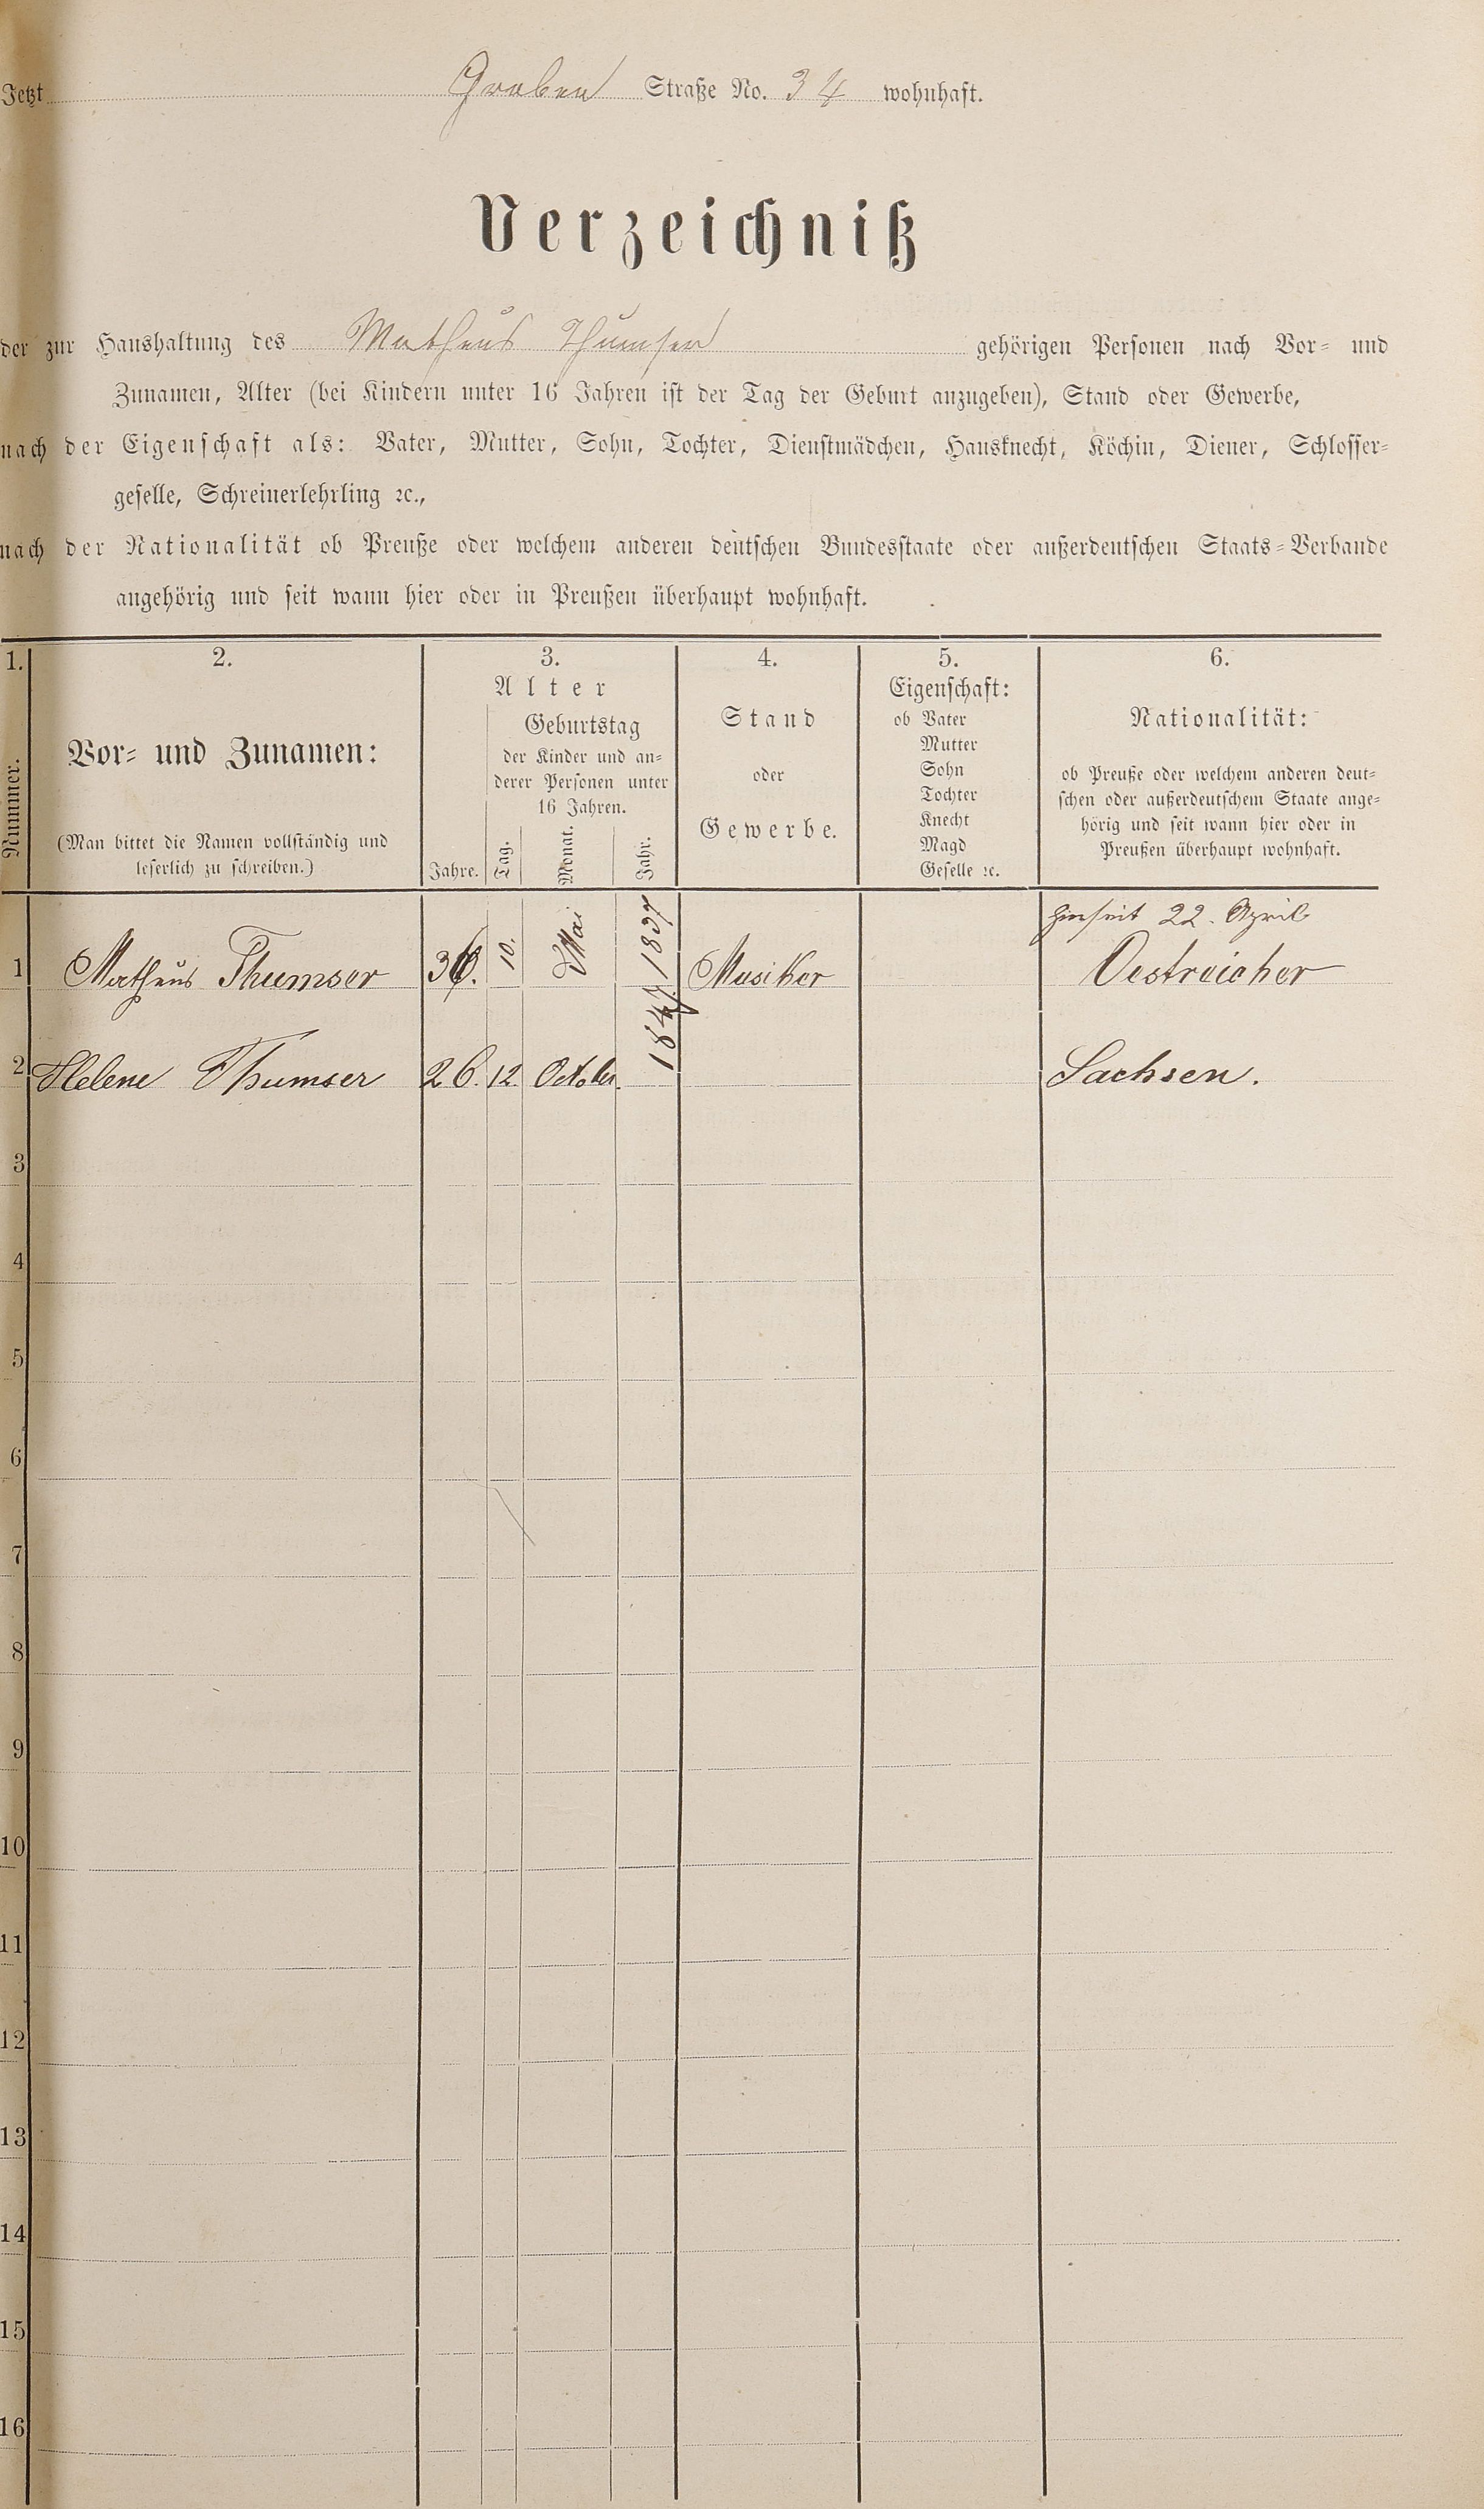 Jetzt Graben Straße No. 34 wohnhaft.
Verzeichniß
der zur Haushaltung des Matheus Thumser gehörigen Personen nach Vor- und
Zunamen, Alter (bei Kindern unter 16 Jahren ist der Tag der Geburt anzugeben), Stand oder Gewerbe,
nach der Eigenschaft als: Vater, Mutter, Sohn, Tochter, Dienstmädchen, Hausknecht, Köchin, Diener, Schlosser-
geselle, Schreinerlehrling ꝛc.,
nach der Nationalität ob Preuße oder welchem anderen deutschen Bundesstaate oder außerdeutschen Staats-Verbande
angehörig und seit wann hier oder in Preußen überhaupt wohnhaft.
1.
Nummer.
2.
Vor- und Zunamen:
(Man bittet die Namen vollständig und
leserlich zu schreiben.)
3.
Alter
Geburtstag
der Kinder und an-
derer Personen unter
16 Jahren.
Jahre. Tag. Monat. Jahr.
4.
Stand
oder
Gewerbe.
5.
Eigenschaft:
ob Vater
Mutter
Sohn
Tochter
Knecht
Magd
Geselle ꝛc.
6.
Nationalität:
ob Preuße oder welchem anderen deut-
schen oder außerdeutschem Staate ange-
hörig und seit wann hier oder in
Preußen überhaupt wohnhaft.
22. April
1 Matheus Thumser 36. 10. Mai 1837 Musiker Oestreicher
2 Helene Thumser 26. 12. October. 1847 Sachsen.
3
4
5
6
7
8
9
10
11
12
13
14
15
16